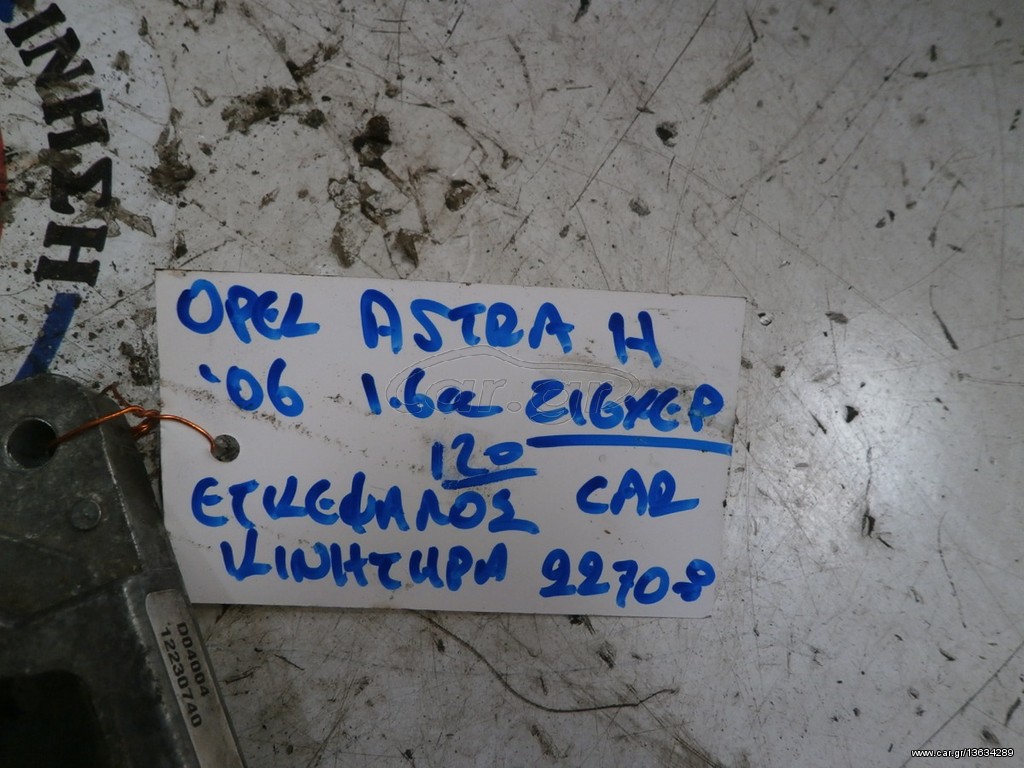 ΙΝΗΣΗ
OPEL ASTRA H
'06 1.6cc Z16XEP
120
ΕΓΚΕΦΑΛΟΣ CAR
ΚΙΝΗΤΗΡΑ 22708
D04004
12230740
car.gr
www.car.gr/13634289